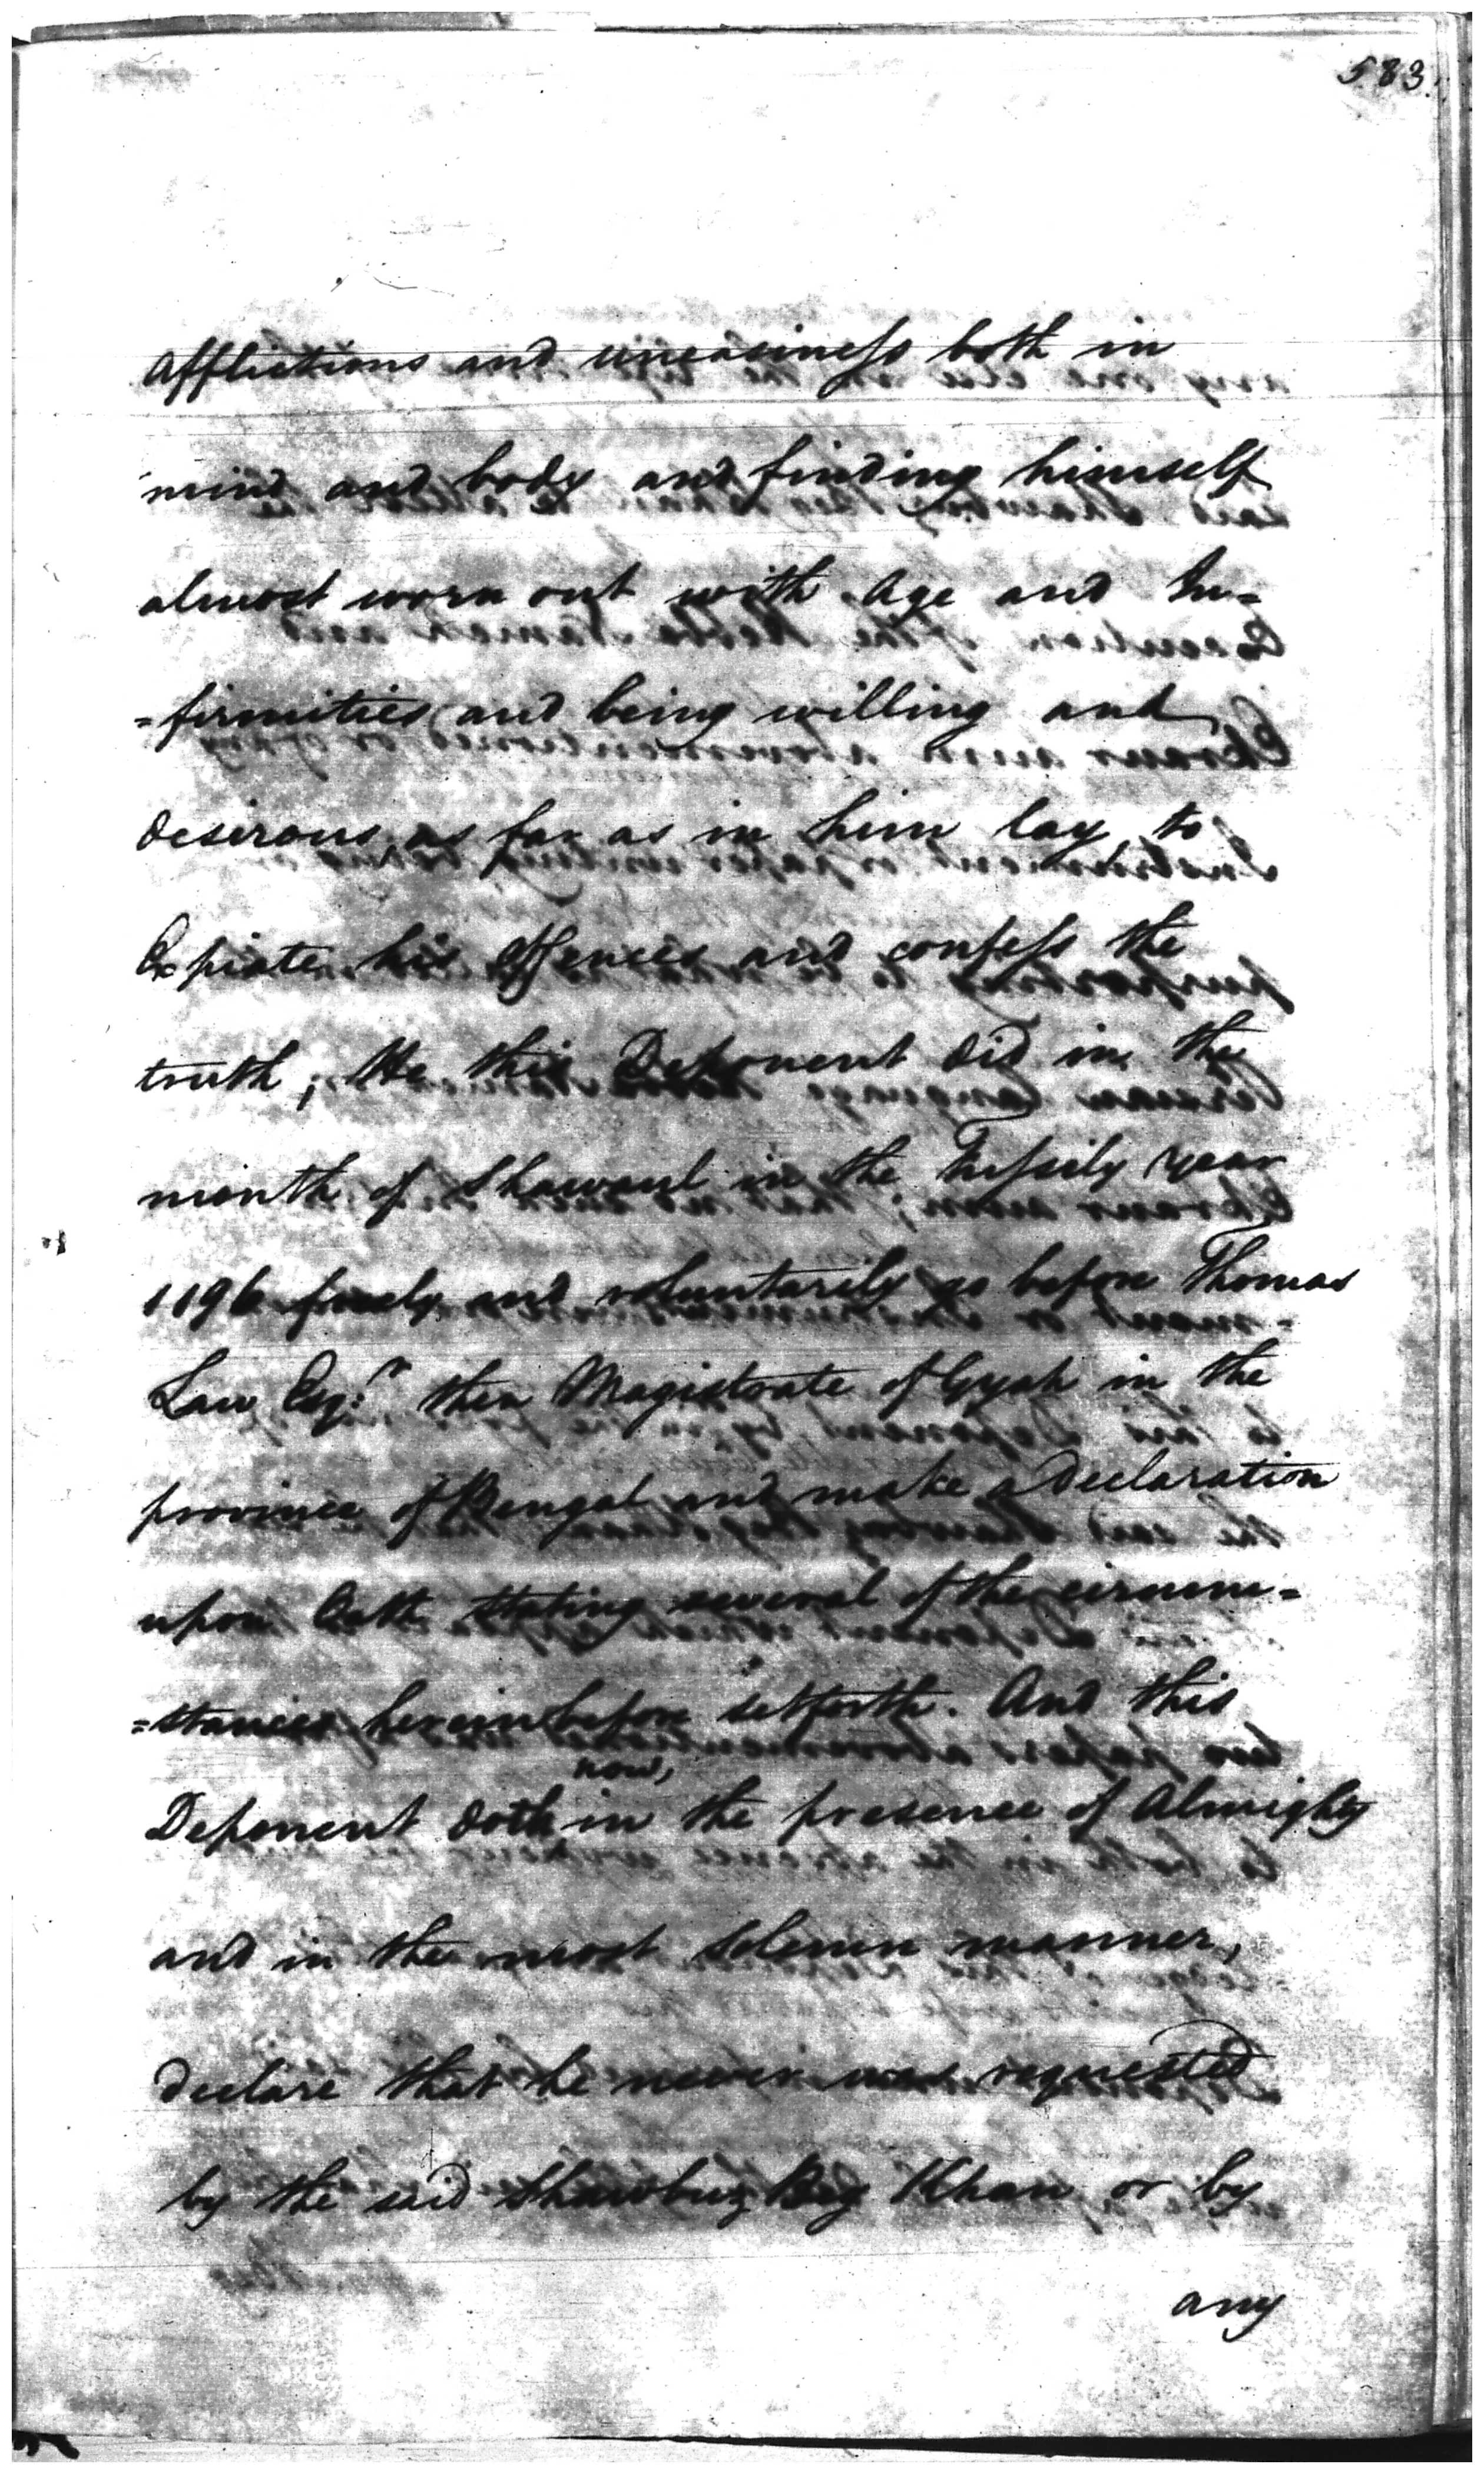 583.
Afflictions and uneasiness both in
mind and body and finding himself
almost worn out with Age and In=
=firmities and being willing and
desirous, as far as in him lay to
Expiate his Offences and confess the
truth, He this Deponent did in the
month of Shawaul in the Fussily year
1196 freely and voluntarily go before Thomas
Law Esq:r then Magistrate of Gyah in the
province of Bengal and make a Declaration
upon Oath stating several of the circum=
=stances herein before setforth. And this
now,
Deponent doth in the presence of Almighty
and in the most solemn manner,
declare that he never was requested
by the said Shawbuz Beg Khan or by
any